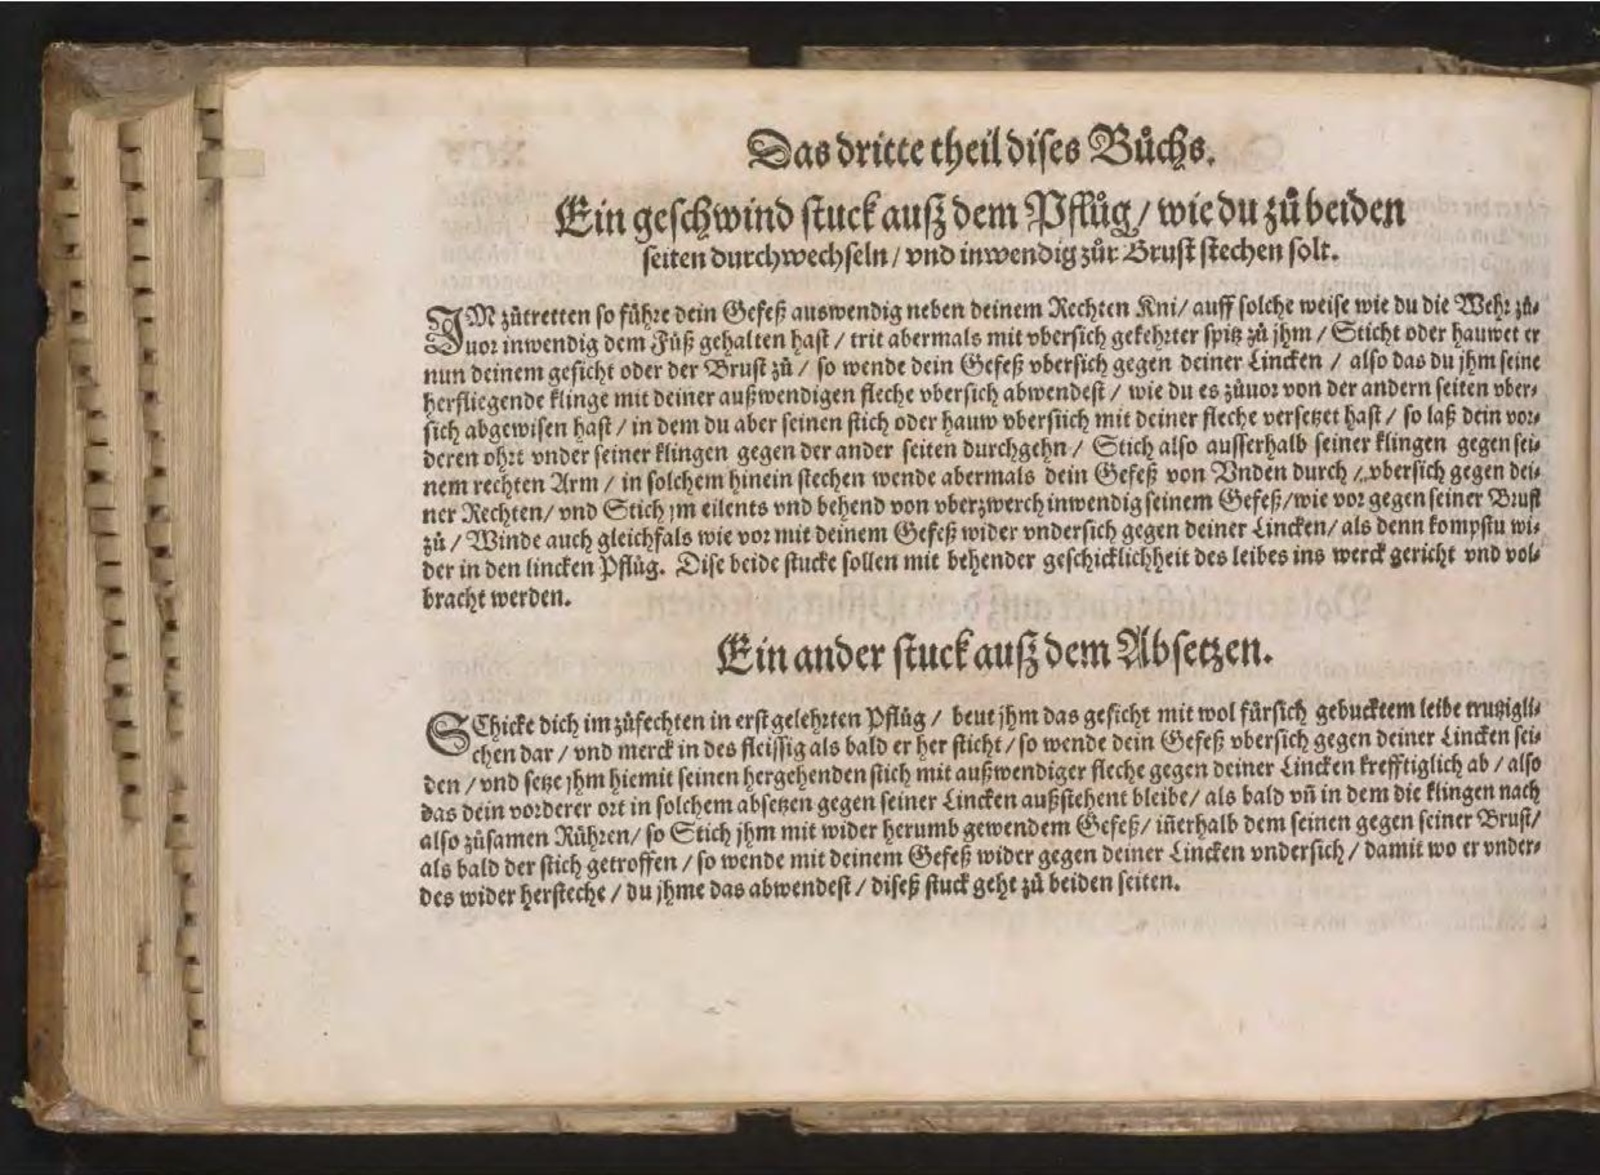 Das dritte theil dises Bůchs.
Ein geschwind stuck auß dem Pflůg / wie du zů beiden
seiten durchwechseln / vnd inwendig zůr Brust stechen solt.
IM zůtretten so führe dein Gefeß auswendig neben deinem Rechten Kni / auff solche weise wie du die Wehr zů-
uor inwendig dem Fůß gehalten hast / trit abermals mit vbersich gekehrter spitz zů jhm / Sticht oder hauwet er
nun deinem gesicht oder der Brust zů / so wende dein Gefeß vbersich gegen deiner Lincken / also das du jhm seine
herfliegende klinge mit deiner außwendigen fleche vbersich abwendest / wie du es zůuor von der andern seiten vber-
sich abgewisen hast / in dem du aber seinen stich oder hauw vbersich mit deiner fleche versetzet hast / so laß dein vor-
deren ohrt vnder seiner klingen gegen der ander seiten durchgehn / Stich also ausserhalb seiner klingen gegen sei-
nem rechten Arm / in solchem hinein stechen wende abermals dein Gefeß von Vnden durch / vbersich gegen dei-
ner Rechten / vnd Stich jm eilents vnd behend von vberzwerch inwendig seinem Gefeß / wie vor gegen seiner Brust
zů / Winde auch gleichfals wie vor mit deinem Gefeß wider vndersich gegen deiner Lincken / als denn kompstu wi-
der in den lincken Pflůg. Dise beide stucke sollen mit behender geschicklichheit des leibes ins werck gericht vnd vol-
bracht werden.
Ein ander stuck auß dem Absetzen.
SChicke dich im zůfechten in erst gelehrten Pflůg / beut jhm das gesicht mit wol fürsich gebucktem leibe trutzigli-
chen dar / vnd merck in des fleissig als bald er her sticht / so wende dein Gefeß vbersich gegen deiner Lincken sei-
den / vnd setze jhm hiemit seinen hergehenden stich mit außwendiger fleche gegen deiner Lincken krefftiglich ab / also
das dein vorderer ort in solchem absetzen gegen seiner Lincken außstehent bleibe / als bald vñ in dem die klingen nach
also zůsamen Rühren / so Stich jhm mit wider herumb gewendem Gefeß / iñerhalb dem seinen gegen seiner Brust /
als bald der stich getroffen / so wende mit deinem Gefeß wider gegen deiner Lincken vndersich / damit wo er vnder-
des wider hersteche / du jhme das abwendest / diseß stuck geht zů beiden seiten.